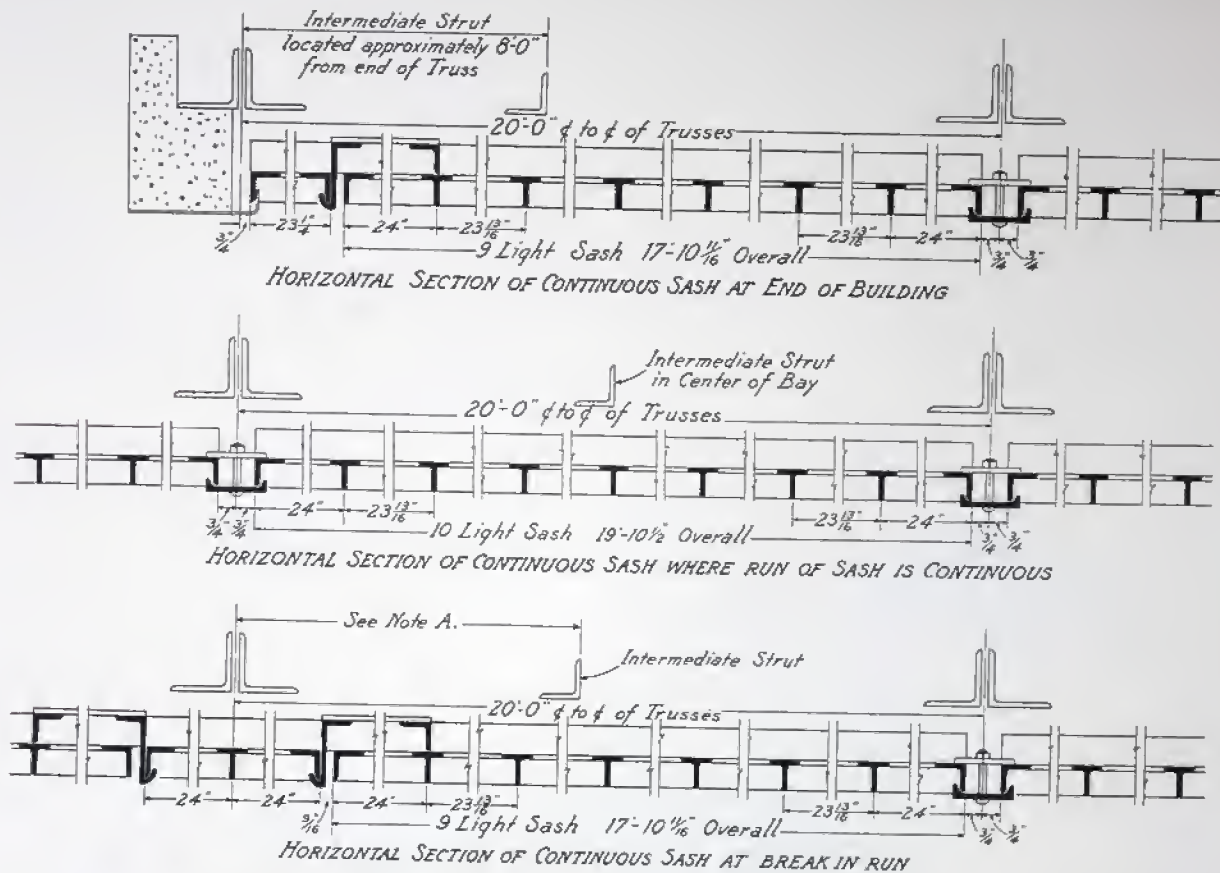 Intermediate Strut
located approximately 8'-0"
from end of Truss
20'-0" ¢ to ¢ of Trusses
3/4" 23 1/4" 24" 23 13/16" 23 13/16" 24" 3/4" 3/4"
9 Light Sash 17'-10 11/16" Overall
HORIZONTAL SECTION OF CONTINUOUS SASH AT END OF BUILDING
Intermediate Strut
in Center of Bay
20'-0" ¢ to ¢ of Trusses
3/4" 3/4" 24" 23 13/16" 23 13/16" 24" 3/4" 3/4"
10 Light Sash 19'-10 1/2" Overall
HORIZONTAL SECTION OF CONTINUOUS SASH WHERE RUN OF SASH IS CONTINUOUS
See Note A.
Intermediate Strut
20'-0" ¢ to ¢ of Trusses
24" 24" 9/16" 24" 23 13/16" 23 13/16" 24" 3/4" 3/4"
9 Light Sash 17'-10 11/16" Overall
HORIZONTAL SECTION OF CONTINUOUS SASH AT BREAK IN RUN